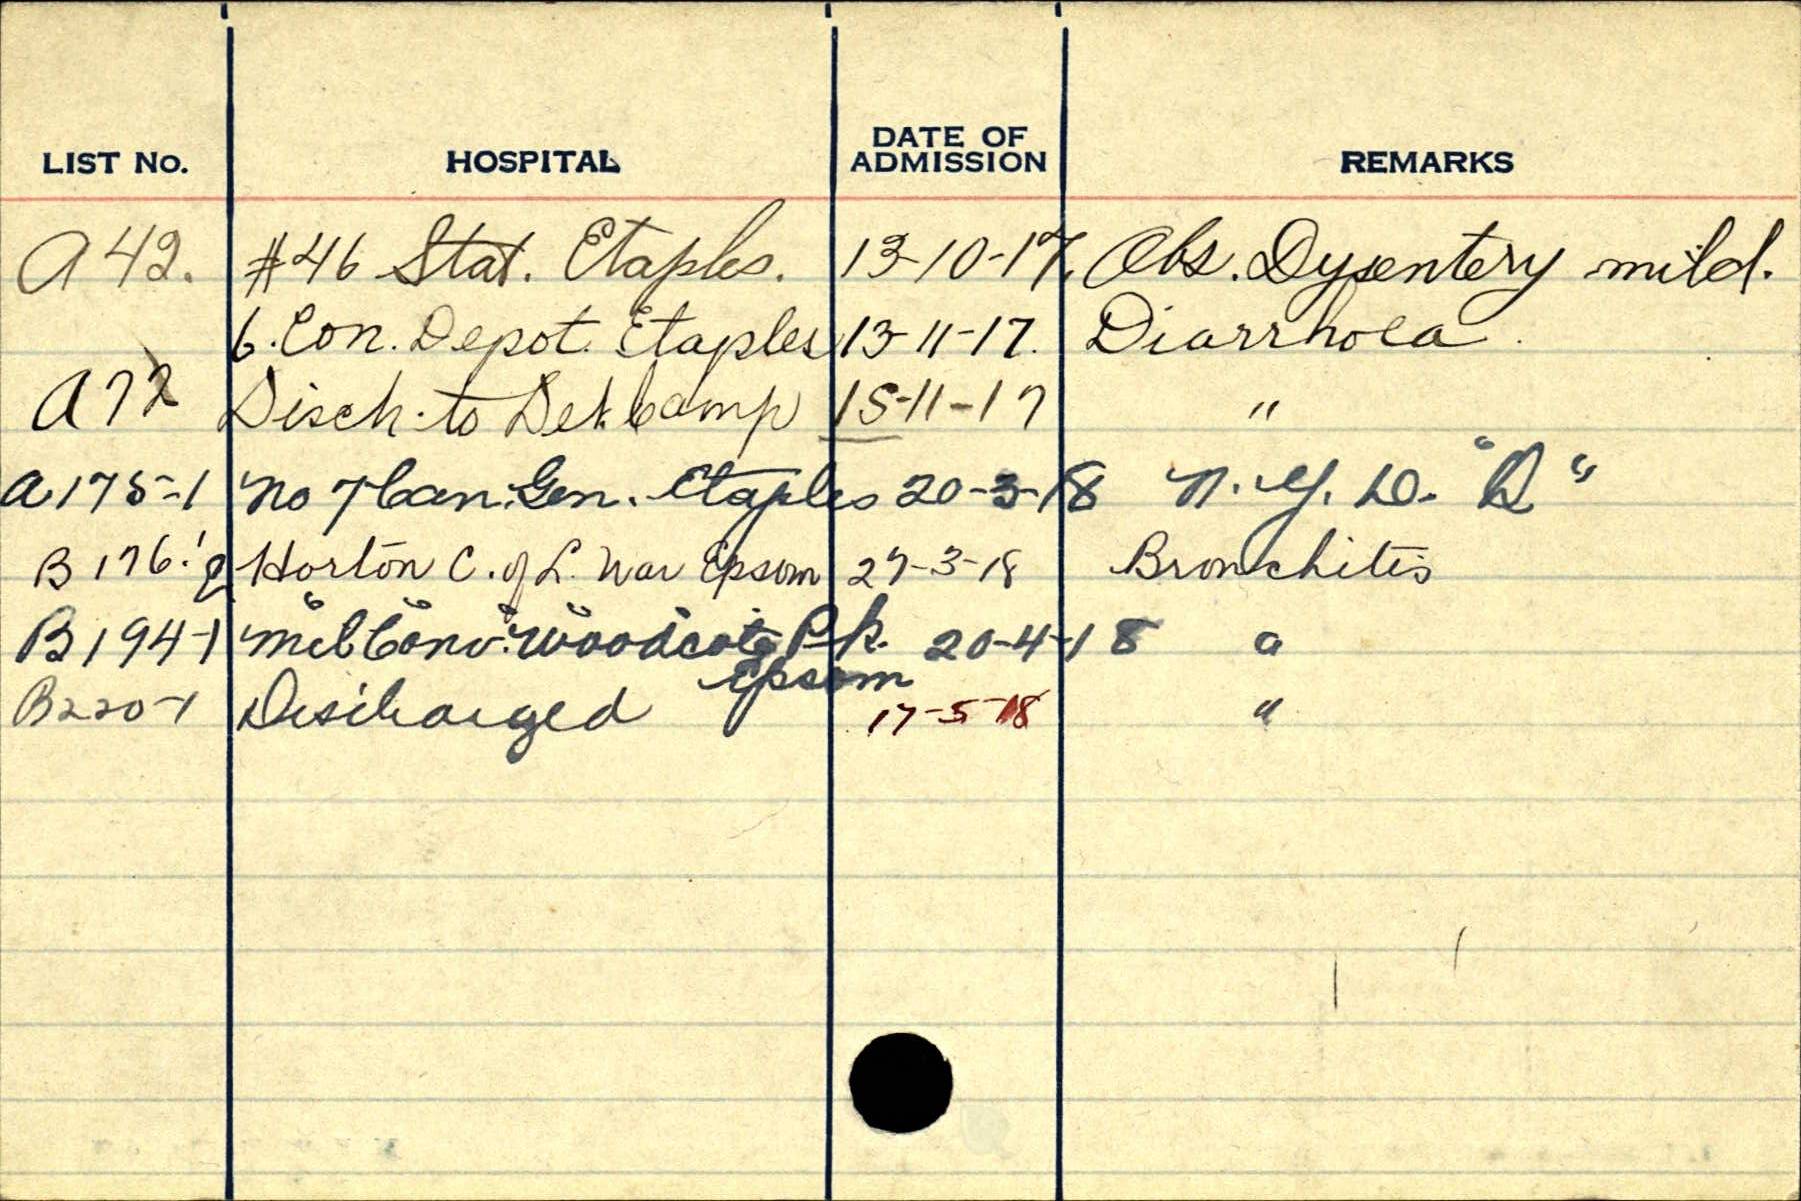 LIST No. HOSPITAL DATE OF ADMISSION REMARKS
A 42. #46 Stat. Etaples. 13-10-17. Obs. Dysentery mild.
6. Con. Depot. Etaples 13-11-17. Diarrhoea.
A 72 Disch. to Det. Camp 15-11-17 "
A 175-1 No 7 Can. Gen. Etaples 20-3-18 N. Y. D. "D"
B 176. Horton C. of L. War Epsom 27-3-18 Bronchitis
B 194-1 Mil Conv. Woodcote Pk. 20-4-18 "
Epsom
B220-1 Discharged 17-5-18 "